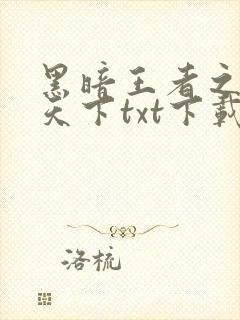 黑暗王者之
天下txt下载
洛梳